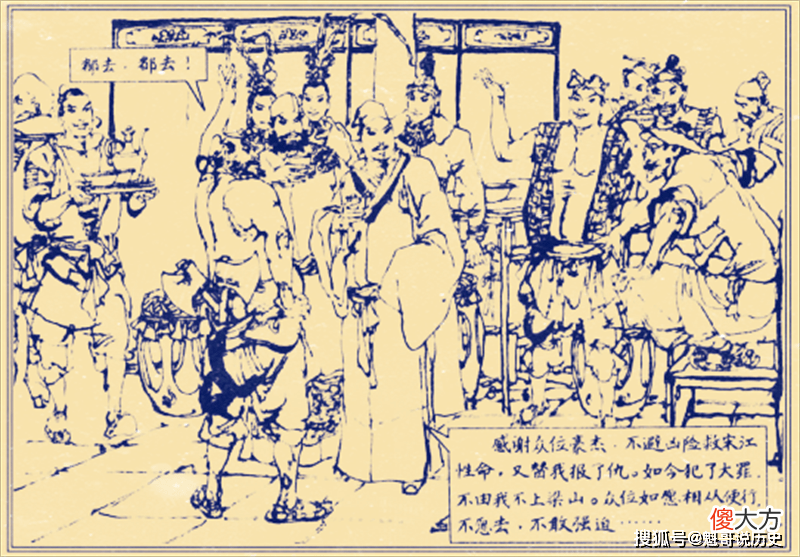 都去，都去！
感谢众位豪杰，不避凶险救宋江
性命，又替我报了仇。如今犯了大罪，
不由我不上梁山。众位如愿相从便行，
不愿去，不敢强迫……
傻大方
搜狐号@魁哥说历史